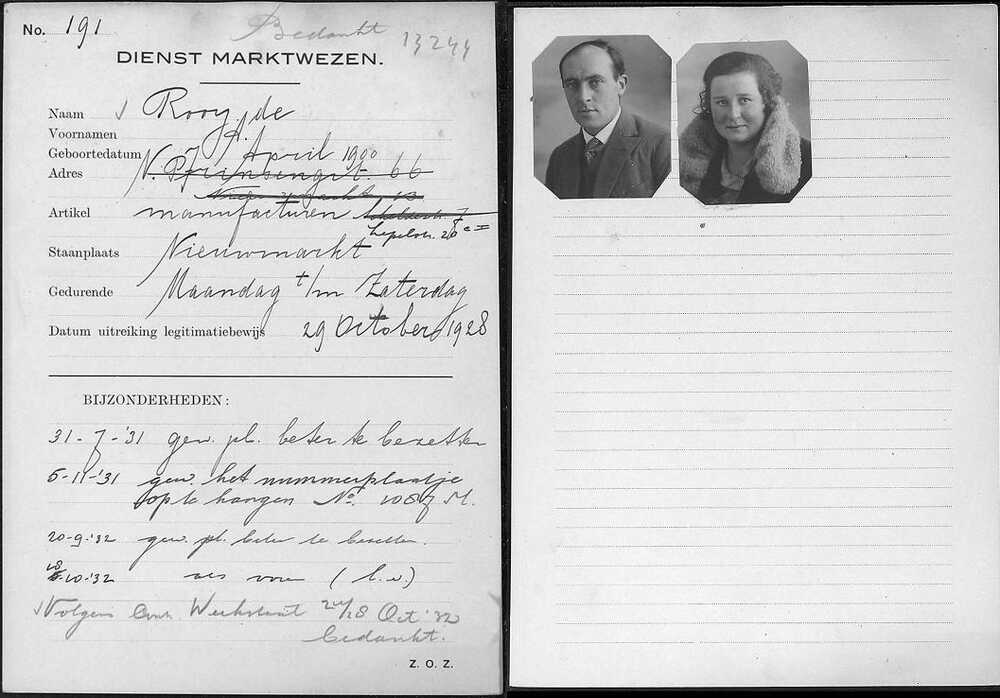 No. 191 Bedankt 13244
DIENST MARKTWEZEN.
Naam Rooy, de
Voornamen A.
Geboortedatum 7 April 1900
Adres N. Prinsengr. 66
Artikel manufacturen
Lepelstr. 28 c II
Staanplaats Nieuwmarkt
Gedurende Maandag t/m Zaterdag
Datum uitreiking legitimatiebewijs 29 October 1928
BIJZONDERHEDEN:
31-7-'31 gew. pl. beter te bezetten
5-11-'31 gew. het nummerplaatje
op te hangen No. 108 M.
20-9-'32 gew. pl. beter te bezetten.
10-'32 als voren (l.w)
Volgens Contr. Weekstaat 24/28 Oct '32
bedankt.
Z. O. Z.